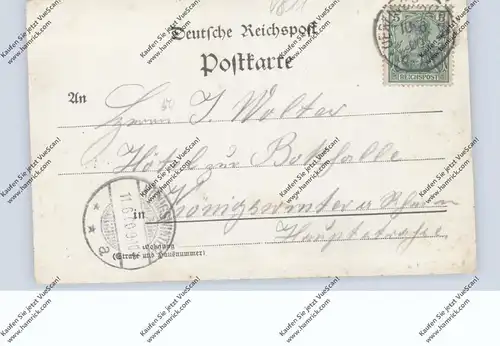 Deutsche Reichspost
Postkarte
An
Herrn J. Wolter
Hôtel zur
in Königswinter a Rhein
Hauptstrasse
Wohnung
(Straße und Hausnummer)
REICHSPOST
Kaufen Sie jetzt Ihr VueScan!
www.hamrick.com